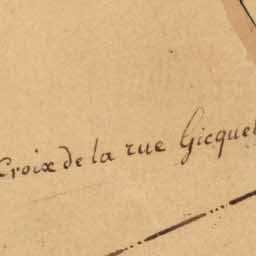 Croix de la rue Gicquel